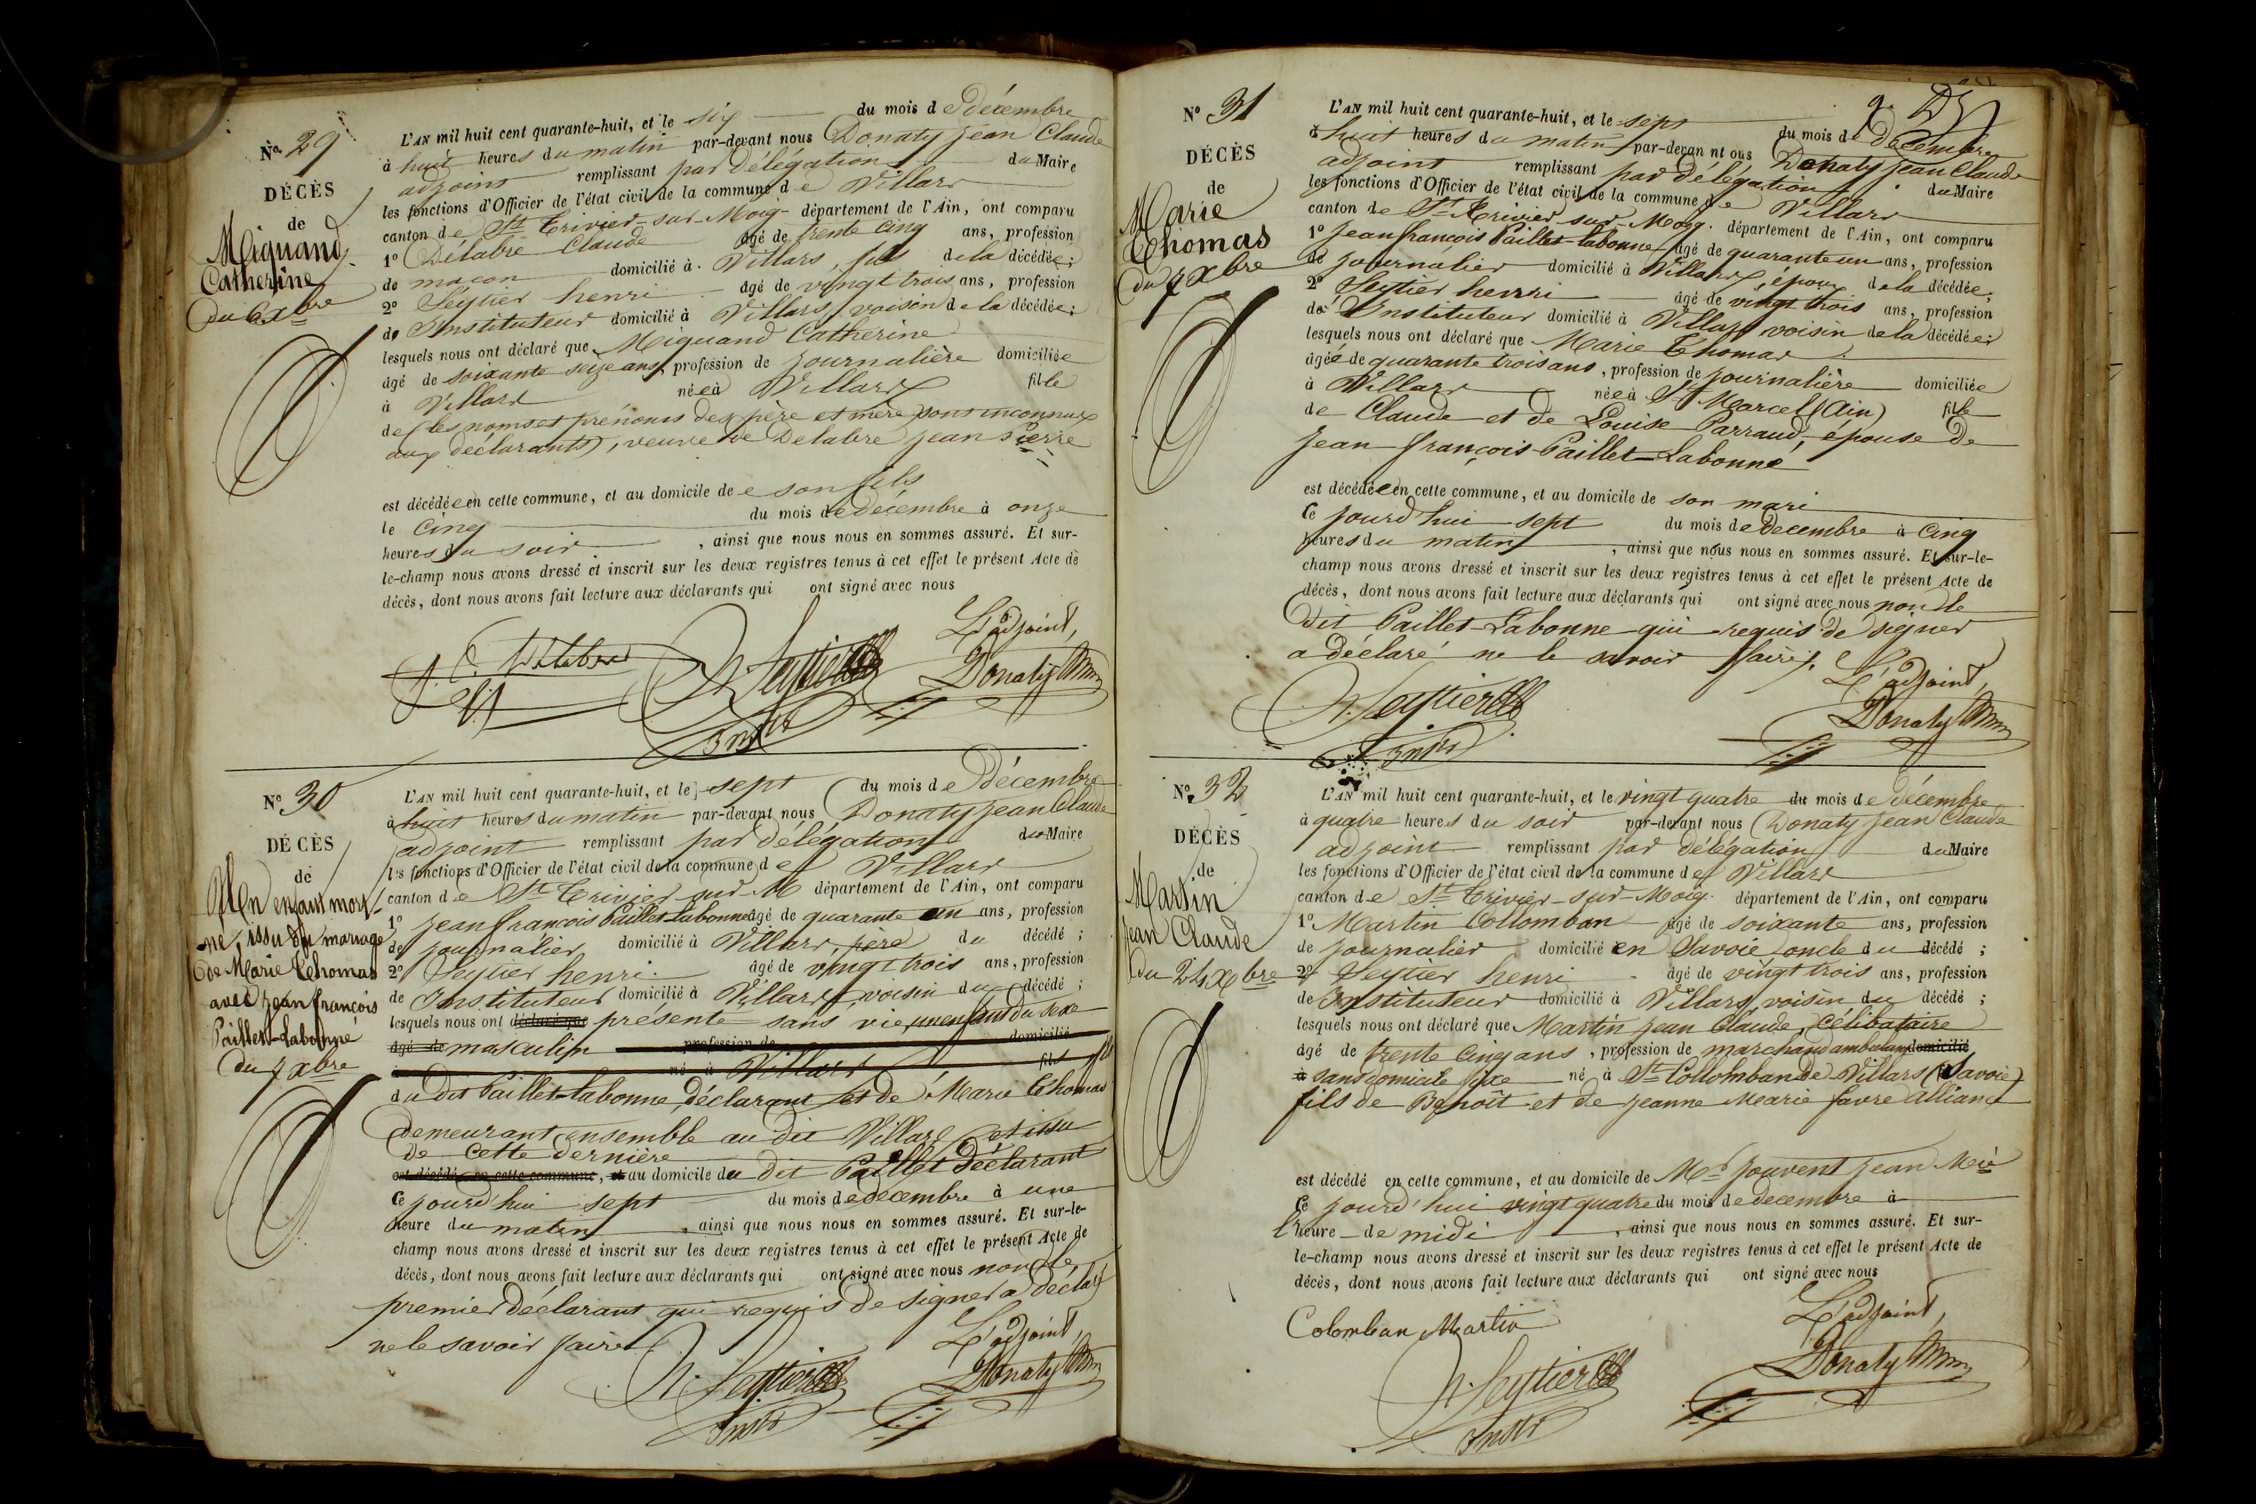 N° 29
DÉCÈS
de
Miguand
Catherine
du 6 Xbre
L'AN mil huit cent quarante-huit, et le six du mois de décembre
à huit heures du matin par-devant nous Donaty jean Claude
adjoint remplissant par délégation du Maire
les fonctions d'Officier de l'état civil de la commune de Villars
canton de St Trivier-sur-Moig- département de l'Ain, ont comparu
1° Délabre Claude âgé de trente cinq ans, profession
de maçon domicilié à Villars, fils de la décédée;
2° Seytier henri âgé de vingt trois ans, profession
de Instituteur domicilié à Villars, voisin de la décédée;
lesquels nous ont déclaré que Miguand Catherine
âgé de soixante seize ans, profession de journalière domiciliée
à Villars née à Villars fille
de (les noms et prénoms des père et mère sont inconnus
aux déclarants), veuve de Delabre jean Pierre
est décédée en cette commune, et au domicile de son fils
le cinq du mois de décembre à onze
heures du soir, ainsi que nous nous en sommes assuré. Et sur-
le-champ nous avons dressé et inscrit sur les deux registres tenus à cet effet le présent Acte de
décès, dont nous avons fait lecture aux déclarants qui ont signé avec nous
L'adjoint,
Delabre H. Seytier Donaty
Instr
N° 30
DÉCÈS
de
un enfant mort-
né, issu du mariage
de Marie Thomas
avec jean françois
Paillet-Labonne
du 7 Xbre
L'AN mil huit cent quarante-huit, et le sept du mois de Décembre
à huit heures du matin par-devant nous Donaty jean Claude
adjoint remplissant par délégation du Maire
les fonctions d'Officier de l'état civil de la commune de Villars
canton de St Trivier sur M département de l'Ain, ont comparu
1° jean françois Paillet-labonne âgé de quarante un ans, profession
de journalier domicilié à Villars, père du décédé;
2° Seytier henri âgé de vingt trois ans, profession
de Instituteur domicilié à Villars, voisin du décédé;
lesquels nous ont déclaré que présenté sans vie, un enfant du sexe
âgé de masculin profession de domicilié
né à Villars fils
du dit Paillet-labonne, déclarant et de Marie Thomas
demeurant ensemble au dit Villars, et issu
de cette dernière
est décédé en cette commune, et au domicile du dit Paillet déclarant
Ce jourd'hui sept du mois de decembre à une
heure du matin, ainsi que nous nous en sommes assuré. Et sur-le-
champ nous avons dressé et inscrit sur les deux registres tenus à cet effet le présent Acte de
décès, dont nous avons fait lecture aux déclarants qui ont signé avec nous non le
premier déclarant qui requis de signer a déclaré
ne le savoir faire.
L'adjoint,
H. Seytier Donaty
Instr
N° 31
DÉCÈS
de
Marie
Thomas
du 7 Xbre
L'AN mil huit cent quarante-huit, et le sept du mois de décembre
à huit heures du matin par-devant nous Donaty jean Claude
adjoint remplissant par délégation du Maire
les fonctions d'Officier de l'état civil de la commune de Villars
canton de St Trivier sur Moig. département de l'Ain, ont comparu
1° jean françois Paillet-labonne âgé de quarante un ans, profession
de journalier domicilié à Villars, époux de la décédée;
2° Seytier henri âgé de vingt trois ans, profession
de Instituteur domicilié à Villars, voisin de la décédée;
lesquels nous ont déclaré que Marie Thomas
âgée de quarante trois ans, profession de journalière domiciliée
à Villars née à St Marcel (Ain) fille
de Claude et de Louise Parraud, épouse de
jean françois Paillet-Labonne
est décédée en cette commune, et au domicile de son mari
Ce jourd'hui sept du mois de decembre à cinq
heures du matin, ainsi que nous nous en sommes assuré. Et sur-le-
champ nous avons dressé et inscrit sur les deux registres tenus à cet effet le présent Acte de
décès, dont nous avons fait lecture aux déclarants qui ont signé avec nous non le
dit Paillet-Labonne qui requis de signer
a déclaré ne le savoir faire.
L'adjoint,
H. Seytier Donaty
Instr
N° 32
DÉCÈS
de
Martin
jean Claude
du 24 Xbre
L'AN mil huit cent quarante-huit, et le vingt quatre du mois de décembre
à quatre heures du soir par-devant nous Donaty jean Claude
adjoint remplissant par délégation du Maire
les fonctions d'Officier de l'état civil de la commune de Villars
canton de St Trivier-sur-Moig. département de l'Ain, ont comparu
1° Martin Collomban âgé de soixante ans, profession
de journalier domicilié en Savoie, oncle du décédé;
2° Seytier henri âgé de vingt trois ans, profession
de Instituteur domicilié à Villars, voisin du décédé;
lesquels nous ont déclaré que Martin jean Claude, célibataire
âgé de trente cinq ans, profession de marchand ambulant domicilié
à sans domicile fixe né à St Collomban de Villars (Savoie)
fils de Benoît et de jeanne Marie favre alliance
est décédé en cette commune, et au domicile de Mr jouvent jean Mie
Ce jourd'hui vingt quatre du mois de decembre à
l'heure de midi, ainsi que nous nous en sommes assuré. Et sur-
le-champ nous avons dressé et inscrit sur les deux registres tenus à cet effet le présent Acte de
décès, dont nous avons fait lecture aux déclarants qui ont signé avec nous
L'adjoint,
Colomban Martin
H. Seytier Donaty
Instr